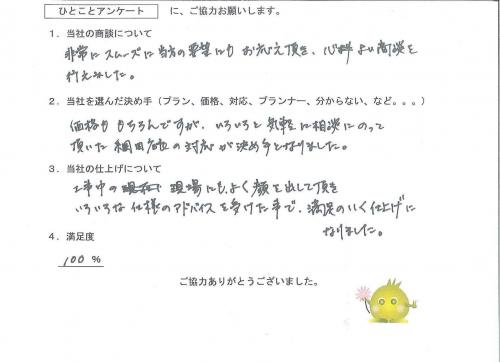 ひとことアンケート に、ご協力お願いします。
1．当社の商談について
非常にスムーズに当方の要望にもお応え頂き、心地よい商談を
行えました。
2．当社を選んだ決め手（プラン、価格、対応、プランナー、分からない、など。。。）
価格ももちろんですが、いろいろと気軽に相談にのって
頂いた細田店の対応が決め手となりました。
3．当社の仕上げについて
工事中の 現場にも、よく顔を出して頂き
いろいろな仕様のアドバイスを受けた事で、満足のいく仕上げに
なりました。
4．満足度
100％
ご協力ありがとうございました。